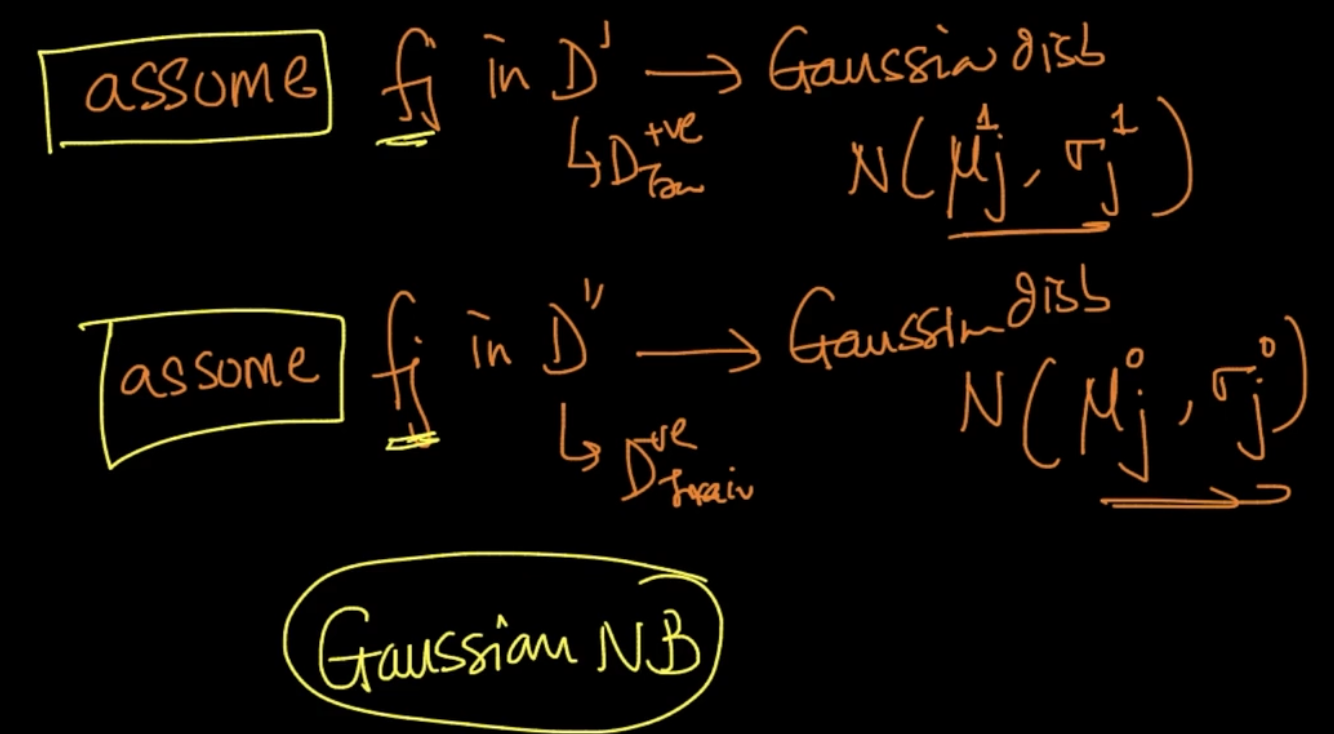 assume fj in D' → Gaussian dist
↳ D+ve Train
N(μj¹, σj¹)
assume fj in D'' → Gaussian dist
↳ D-ve Train
N(μj⁰, σj⁰)
Gaussian NB